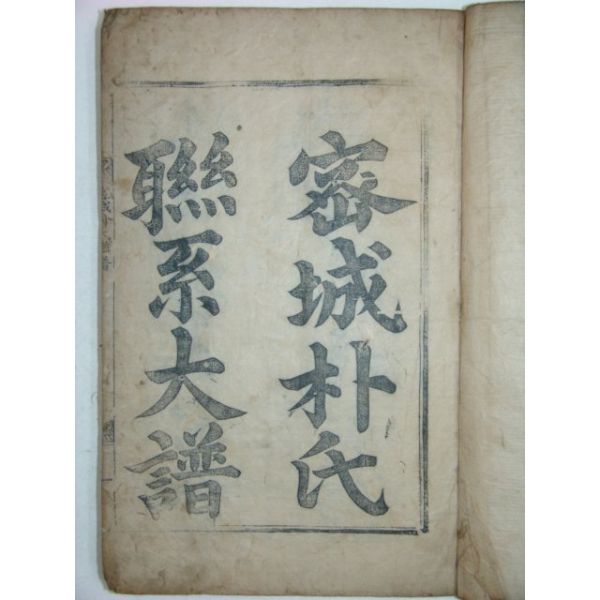 密城朴氏
聯系大譜